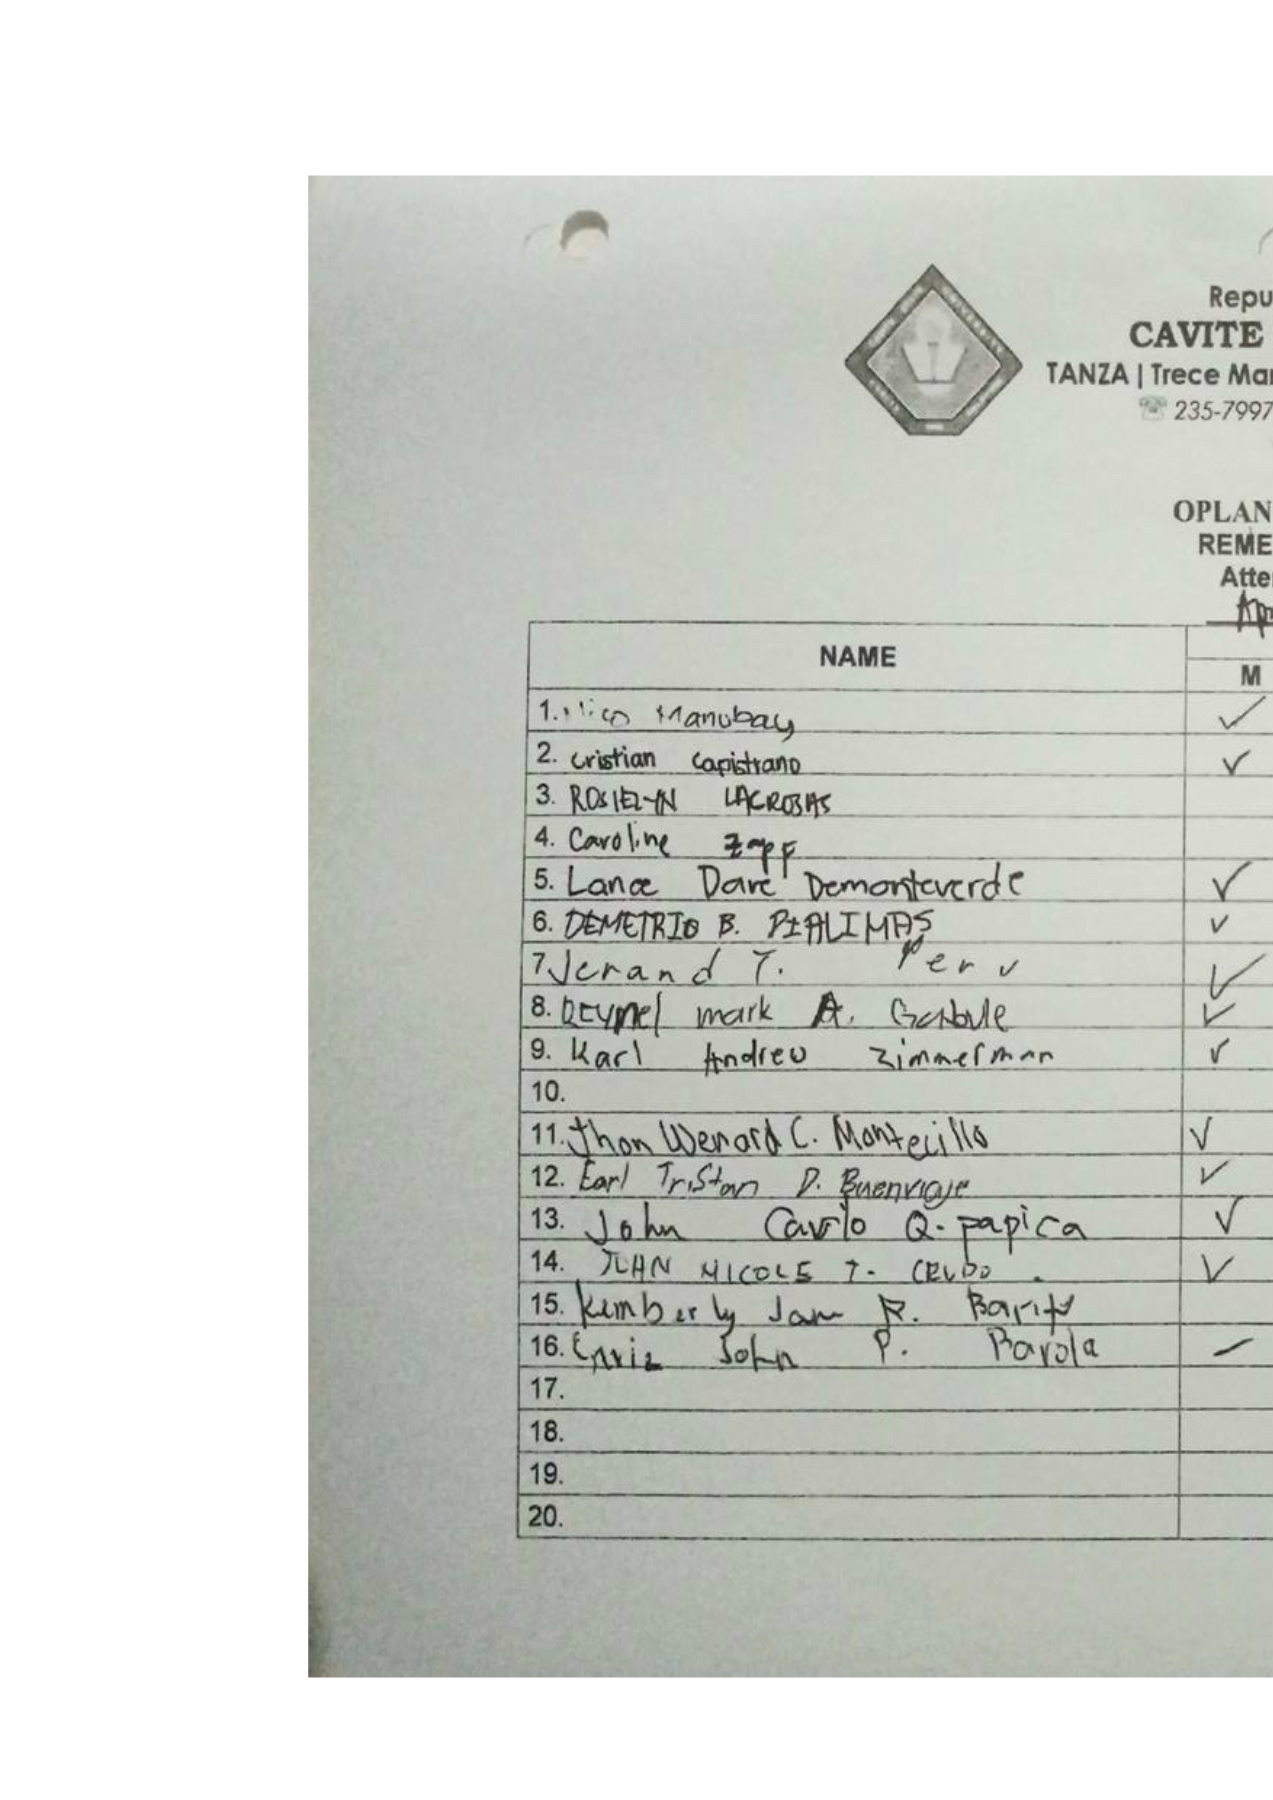 Repu
CAVITE
TANZA | Trece Mar
☎ 235-7997
OPLAN
REME
Atte
Ap
NAME
M
1. Manubay ✓
2. Cristian Capistrano ✓
3. ROSIELYN LACROBAS
4. Caroline Zapf
5. Lance Dave Demonteverde ✓
6. DEMETRIO B. ✓
7. Jerand T. ✓
8. Reymel mark A. Garbule ✓
9. Karl Andrew Zimmerman ✓
10.
11. Jhon Wenard C. Montecillo ✓
12. Earl Tristan D. Buenviaje ✓
13. John Carlo Q. papica ✓
14. NICOLE T. ✓
15. Kimberly R.
16. John P. Barola
17.
18.
19.
20.